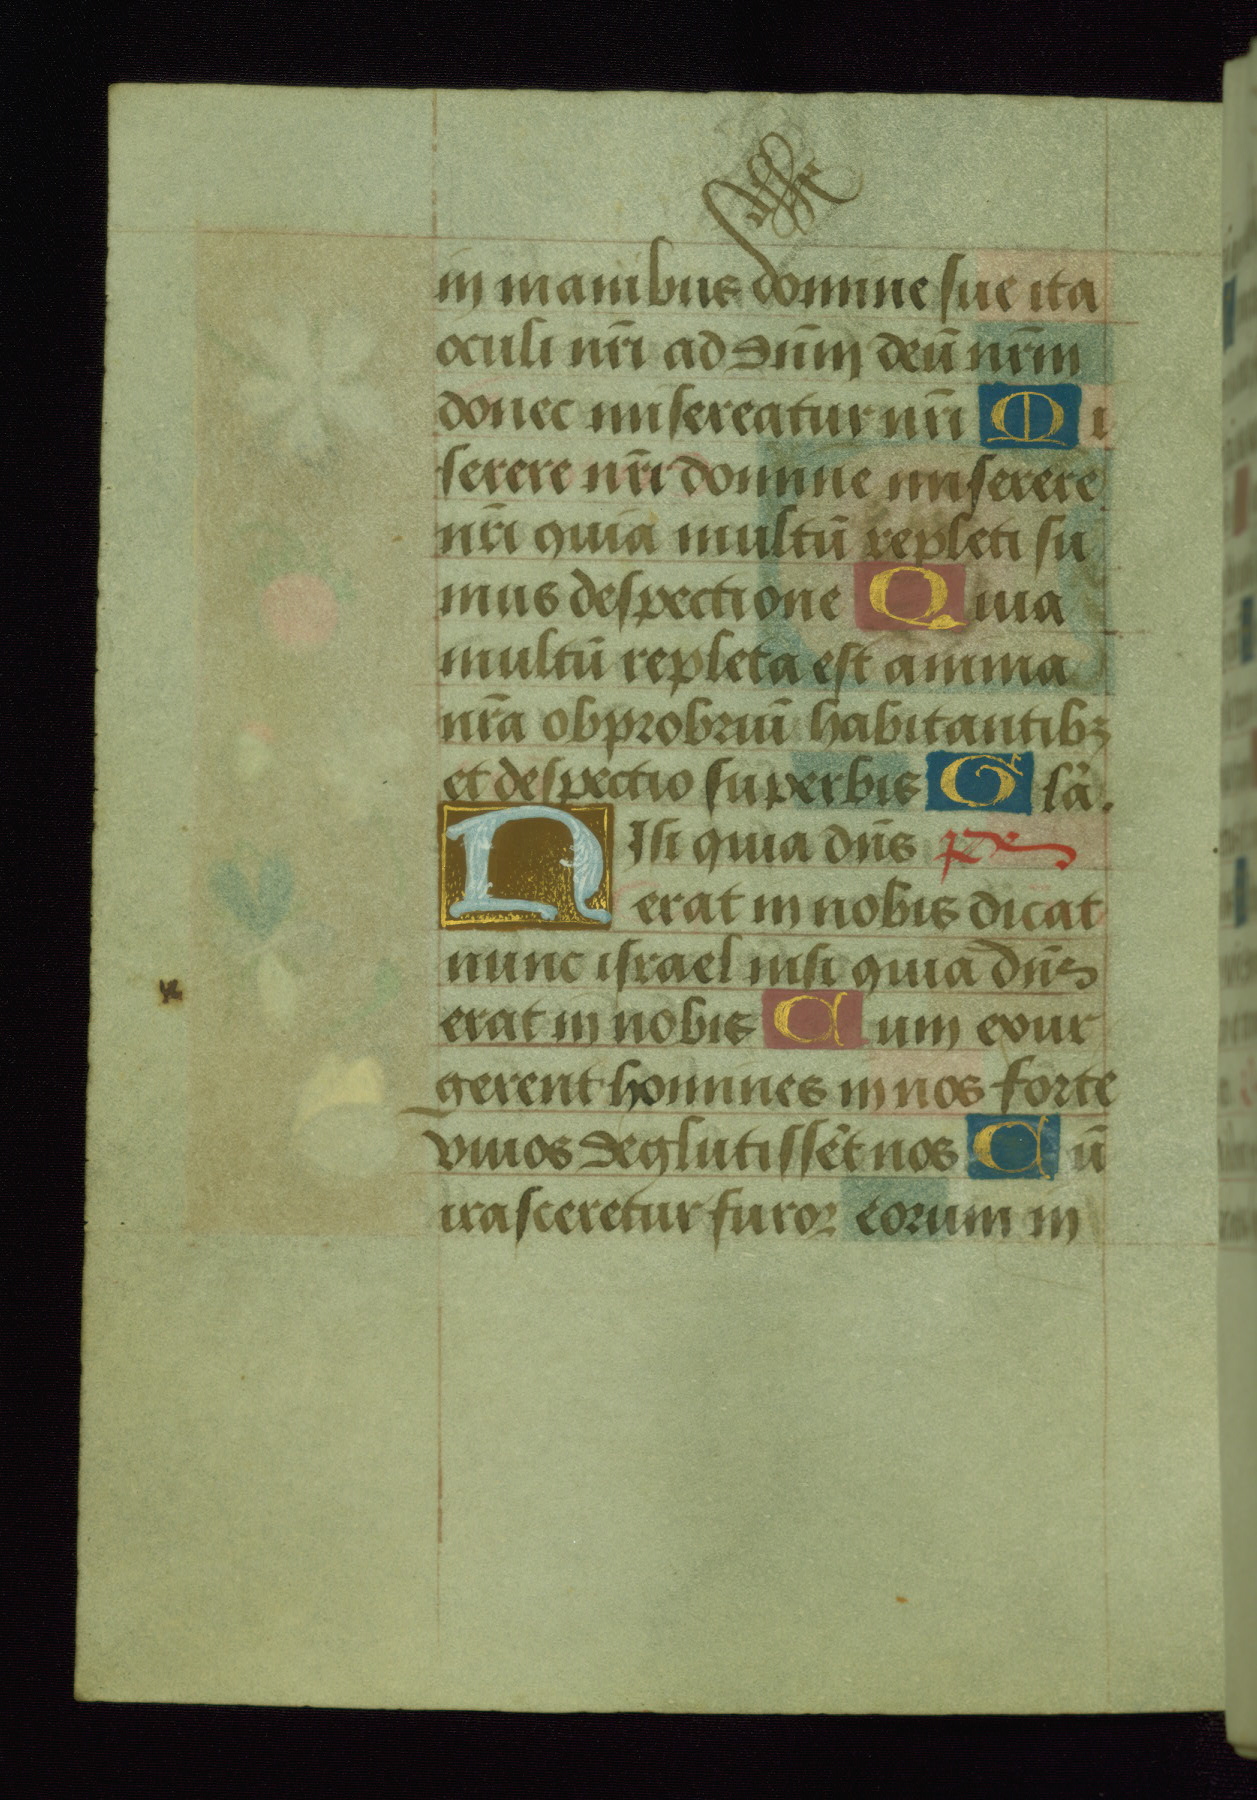 in manibus domine sue ita
oculi nr̄i ad dūm deū nr̄m
donec misereatur nr̄i Mi
serere nr̄i domine miserere
nr̄i quia multū repleti su
mus despectione Quia
multū repleta est anima
nr̄a obprobriū habitantibꝫ
et despectio superbis Glā.
Nisi quia dn̄s ps
erat in nobis dicat
nunc israel nisi quia dn̄s
erat in nobis Cum exur
gerent homines in nos forte
vivos deglutissēt nos Cū
irasceretur furor eorum in